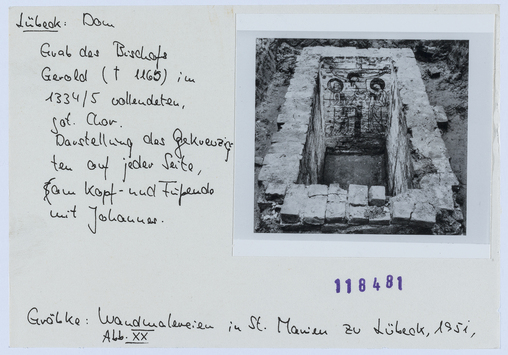 Lübeck: Dom
Grab des Bischofs
Gerold († 1163) im
1334/5 vollendeten,
got. Chor.
Darstellung des Gekreuzig-
ten auf jeder Seite,
am Kopf- und Fußende
mit Johannes.
118481
Gräbke: Wandmalereien in St. Marien zu Lübeck, 1951,
Abb. XX